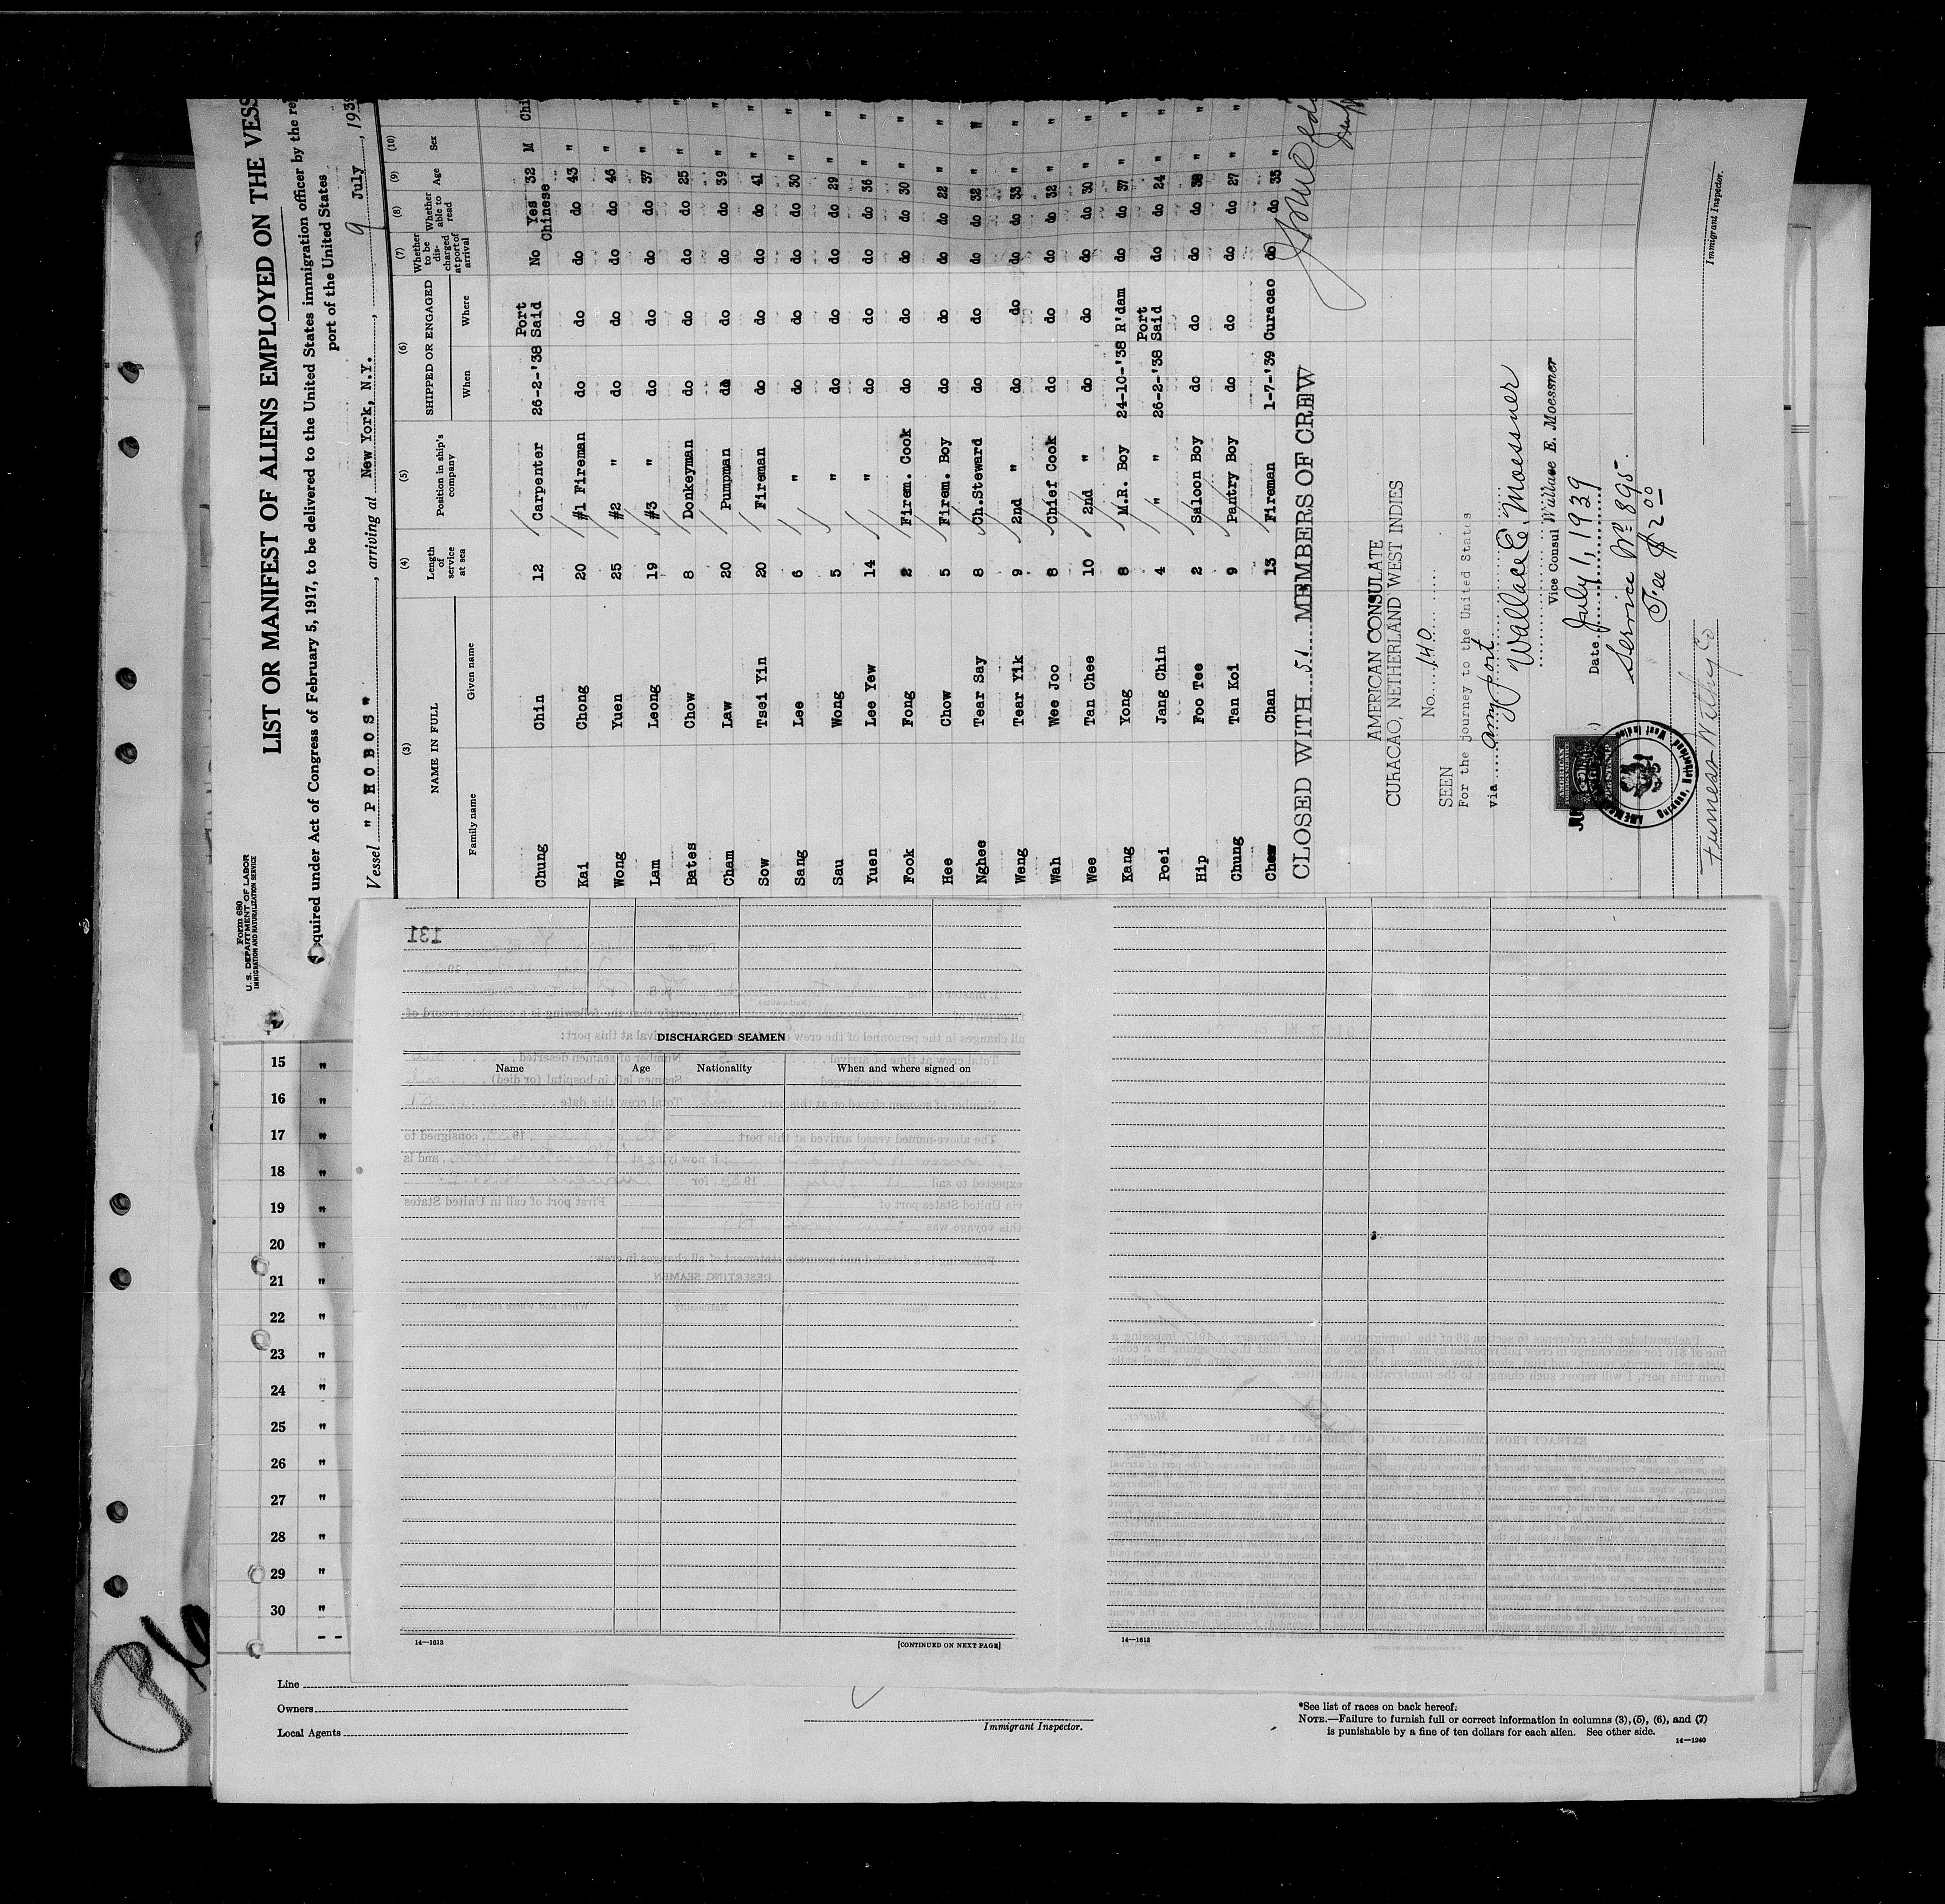 Form 680
U. S. DEPARTMENT OF LABOR
IMMIGRATION AND NATURALIZATION SERVICE
LIST OR MANIFEST OF ALIENS EMPLOYED ON THE VESS
quired under Act of Congress of February 5, 1917, to be delivered to the United States immigration officer by the re
port of the United States
Vessel "PHOBOS", arriving at New York, N.Y., 9 July, 1939
(3) (4) (5) (6) (7) (8) (9) (10)
NAME IN FULL Length of service at sea Position in ship's company SHIPPED OR ENGAGED Whether to be discharged at port of arrival Whether able to read Age Sex
Family name Given name When Where
Chung Chin 12 Carpenter 26-2-'38 Port Said No Yes Chinese 32 M Chi
Kai Chong 20 #1 Fireman do do do do 43 " "
Wong Yuen 25 #2 " do do do do 46 " "
Lam Leong 19 #3 " do do do do 37 " "
Bates Chow 8 Donkeyman do do do do 25 " "
Cham Law 20 Pumpman do do do do 39 " "
Sow Tsei Yin 20 Fireman do do do do 41 " "
Sang Lee 6 " do do do do 30 " "
Sau Wong 5 " do do do do 29 " "
Yuen Lee Yew 14 " do do do do 36 " "
Fook Fong 2 Firem. Cook do do do do 30 " "
Hee Chow 5 Firem. Boy do do do do 22 " "
Nghee Tear Say 8 Ch.Steward do do do do 32 " "
Weng Tear Yik 9 2nd " do do do do 33 " "
Wah Wee Joo 8 Chief Cook do do do do 32 " "
Wee Tan Chee 10 2nd " do do do do 30 " "
Kang Yong 8 M.R. Boy 24-10-'38 R'dam do do 37 " "
Poei Jang Chin 4 " " 26-2-'38 Port Said do do 24 " "
Hip Foo Tee 2 Saloon Boy do do do do 38 " "
Chung Tan Koi 9 Pantry Boy do do do do 27 " "
Chew Chan 13 Fireman 1-7-'39 Curacao do do 33 "
CLOSED WITH 51 MEMBERS OF CREW
AMERICAN CONSULATE
CURACAO, NETHERLAND WEST INDIES
No. 140
SEEN
For the journey to the United States
via any port
Wallace E. Moessner
Vice Consul Wallace E. Moessner
Date July 1, 1939
Service No 895.
Fee $2.00
Furness Withy Co
Immigrant Inspector.
131
DISCHARGED SEAMEN
Name Age Nationality When and where signed on
14—1613 [CONTINUED ON NEXT PAGE]
14—1613
15 "
16 "
17 "
18 "
19 "
20 "
21 "
22 "
23 "
24 "
25 "
26 "
27 "
28 "
29 "
30 "
Line
Owners
Local Agents
Immigrant Inspector.
*See list of races on back hereof.
NOTE.—Failure to furnish full or correct information in columns (3), (5), (6), and (7)
is punishable by a fine of ten dollars for each alien. See other side.
14—1240